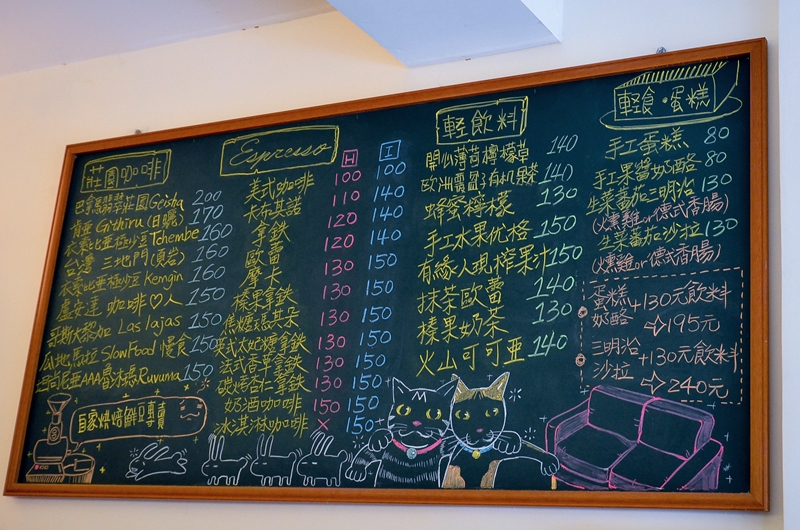 莊園咖啡
巴拿馬翡翠莊園Geisha 200
肯亞 Githiru (日曬) 170
衣索比亞極沙豆Tchembe 160
台灣 三地門 160
衣索比亞極沙豆 Kemgin 160
盧安達 咖啡♡人 150
哥斯大黎加 Las lajas 150
瓜地馬拉 SlowFood 慢食 150
坦司尼亞AAA Ruvuma 150
自家烘焙鮮豆專賣
Espresso H I
美式咖啡 100 100
卡布其諾 110 140
拿鐵 120 140
歐蕾 120 140
摩卡 130 150
榛果拿鐵 130 150
焦糖瑪其朵 130 150
英式太妃糖拿鐵 130 150
法式香草拿鐵 130 150
碳烤杏仁拿鐵 130 150
奶酒咖啡 150 150
冰淇淋咖啡 × 150
輕飲料
開心薄荷檸檬草 140
歐洲覆盆子有机果茶 140
蜂蜜檸檬 130
手工水果优格 150
有緣人現榨果汁 150
抹茶歐蕾 140
榛果奶茶 130
火山可可亞 140
輕食·蛋糕
手工蛋糕 80
手工果醬奶酪 80
生菜番茄三明治 130
(燻雞or德式香腸)
生菜番茄沙拉 130
(燻雞or德式香腸)
蛋糕
奶酪 +130元飲料
⇨195元
三明治
沙拉 +130元飲料
⇨240元